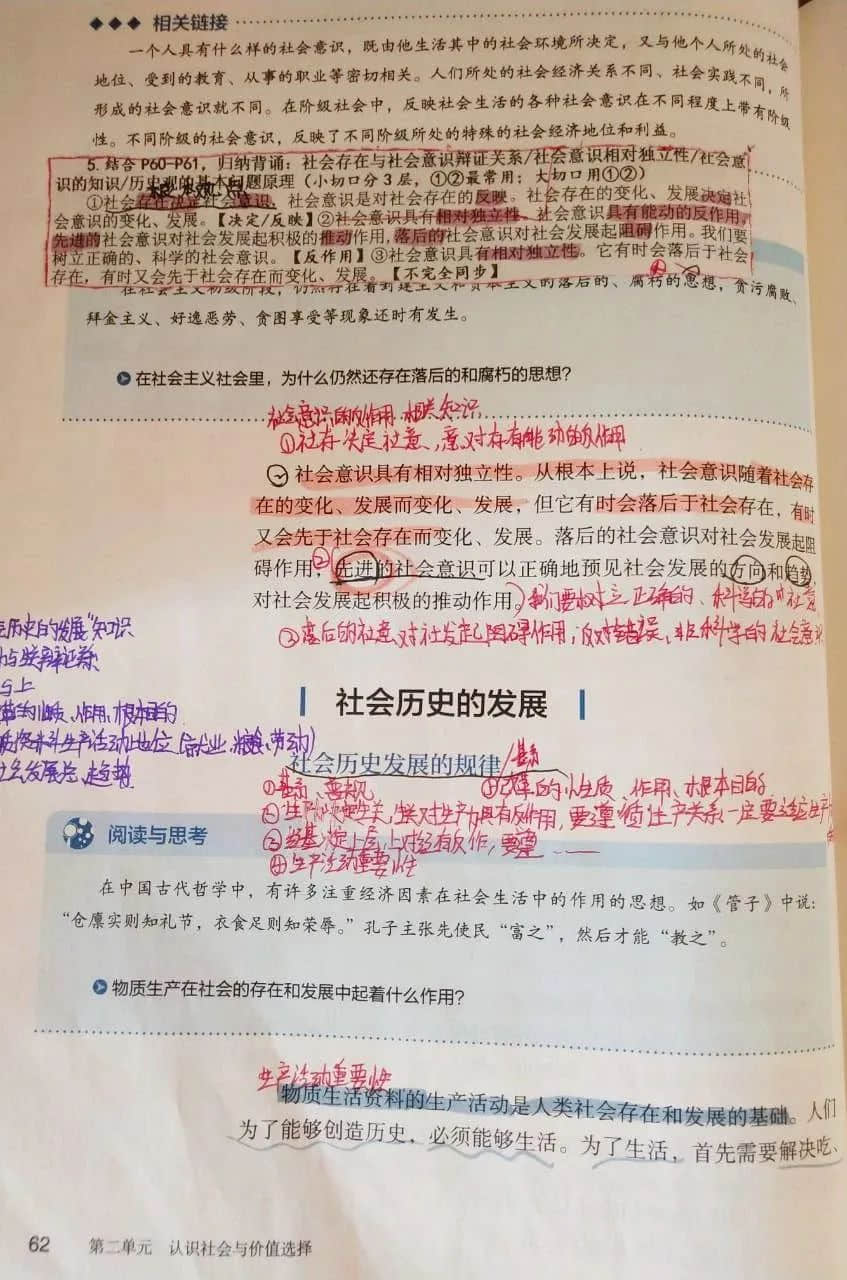 ◆◆◆ 相关链接
一个人具有什么样的社会意识，既由他生活其中的社会环境所决定，又与他个人所处的社会
地位、受到的教育、从事的职业等密切相关。人们所处的社会经济关系不同、社会实践不同，所
形成的社会意识就不同。在阶级社会中，反映社会生活的各种社会意识在不同程度上带有阶级
性。不同阶级的社会意识，反映了不同阶级所处的特殊的社会经济地位和利益。
5. 结合 P60-P61，归纳背诵：社会存在与社会意识辩证关系/社会意识相对独立性/社会意
识的知识/历史观的基本问题原理（小切口分 3 层，①②最常用；大切口用①②）
①社会存在决定社会意识．社会意识是对社会存在的反映。社会存在的变化、发展决定社
会意识的变化、发展。【决定/反映】②社会意识具有相对独立性、社会意识具有能动的反作用。
先进的社会意识对社会发展起积极的推动作用，落后的社会意识对社会发展起阻碍作用。我们要
树立正确的、科学的社会意识。【反作用】③社会意识具有相对独立性。它有时会落后于社会
存在，有时又会先于社会存在而变化、发展。【不完全同步】
在社会主义初级阶段，仍然存在着封建主义和资本主义的落后的、腐朽的思想，贪污腐败、
拜金主义、好逸恶劳、贪图享受等现象还时有发生。
在社会主义社会里，为什么仍然还存在落后的和腐朽的思想？
社会意识的反作用 相关知识
①社存决定社意、意对存有能动的反作用
社会意识具有相对独立性。从根本上说，社会意识随着社会存
在的变化、发展而变化、发展，但它有时会落后于社会存在，有时
又会先于社会存在而变化、发展。落后的社会意识对社会发展起阻
碍作用，②先进的社会意识可以正确地预见社会发展的方向和趋势，
对社会发展起积极的推动作用。我们要树立正确的、科学的社意
③落后的社意对社发起阻碍作用，反对错误、非科学的社会意识
历史的发展"知识
社会历史的发展
社会历史发展的规律
①基 ⑤改革的性质、作用、根本目的
②生产力决定生关，生关对生产力具有反作用，要遵循生产关系一定要适应生产力
③经基决定上层，上对经有反作，要遵
④生产活动重要性
阅读与思考
在中国古代哲学中，有许多注重经济因素在社会生活中的作用的思想。如《管子》中说：
“仓廪实则知礼节，衣食足则知荣辱。”孔子主张先使民“富之”，然后才能“教之”。
物质生产在社会的存在和发展中起着什么作用？
生产活动重要性
物质生活资料的生产活动是人类社会存在和发展的基础。人们
为了能够创造历史，必须能够生活。为了生活，首先需要解决吃、
62 第二单元 认识社会与价值选择